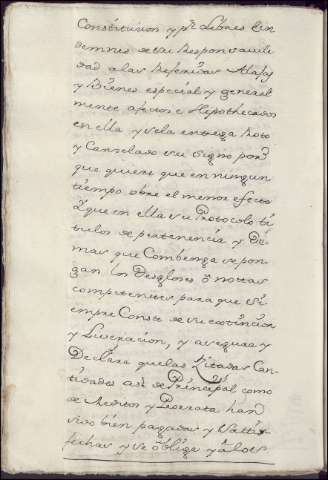 Constitucion y pr. Libres Yn
demnes de su Responsavili
dad a las Referidas Alajas
y Bienes especial y general
mente afectos e Hipothecados
en ella y se la entrega Roto
y Canzelado su signo porq.
que quiere que en ningun
tiempo obre el menor efecto
y que en ella su Protocolo ti
tulos de pertenencia y De
mas que Combenga se pon
gan los Desgloses o nottas
competentes para que si
empre Conste de su extincion
y Liveracion, y asegura y
Declara que las Zitadas Can
tidades asi de Prinzipal como
de Reditos y Prorrata han
sido bien pagadas y Sattis
fechas y se obliga y a los